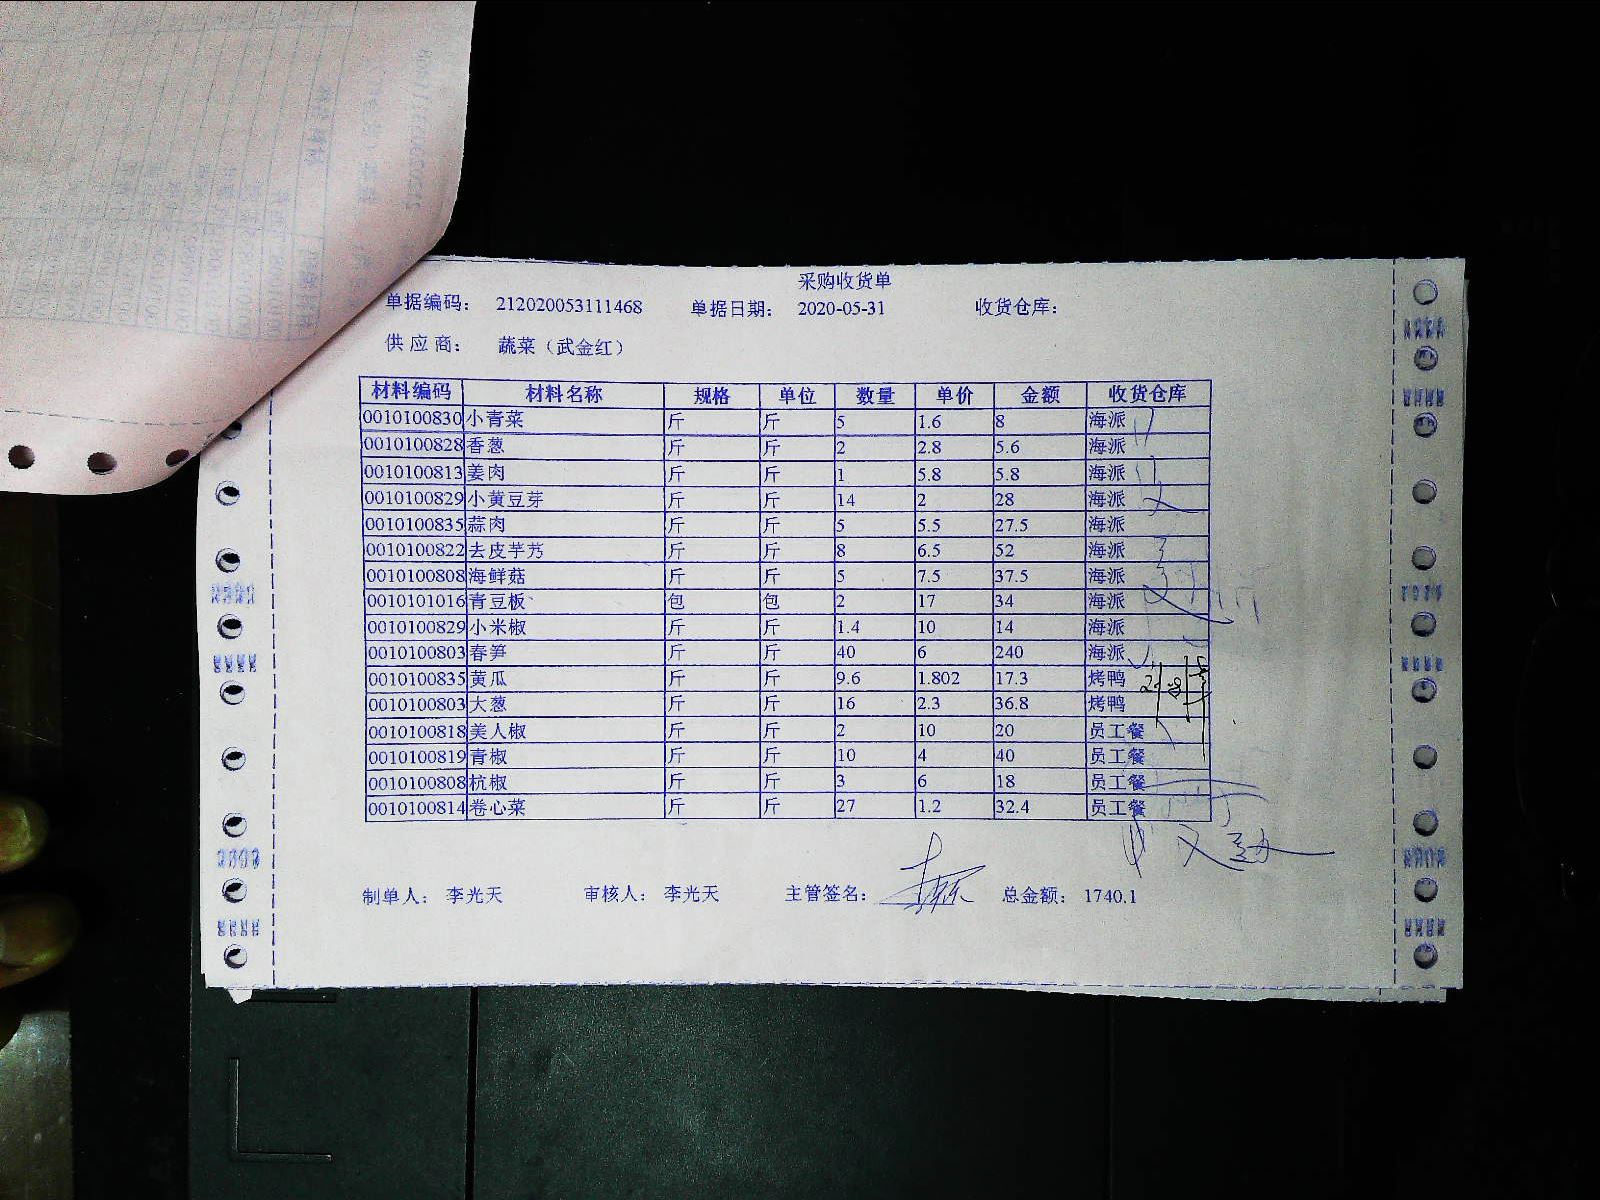 采购收货单
单据编码： 212020053111468 单据日期： 2020-05-31 收货仓库：
供应商： 蔬菜（武金红）
材料编码 材料名称 规格 单位 数量 单价 金额 收货仓库
0010100830 小青菜 斤 斤 5 1.6 8 海派
0010100828 香葱 斤 斤 2 2.8 5.6 海派
0010100813 姜肉 斤 斤 1 5.8 5.8 海派
0010100829 小黄豆芽 斤 斤 14 2 28 海派
0010100835 蒜肉 斤 斤 5 5.5 27.5 海派
0010100822 去皮芋艿 斤 斤 8 6.5 52 海派
0010100808 海鲜菇 斤 斤 5 7.5 37.5 海派
0010101016 青豆板 包 包 2 17 34 海派
0010100829 小米椒 斤 斤 1.4 10 14 海派
0010100803 春笋 斤 斤 40 6 240 海派
0010100835 黄瓜 斤 斤 9.6 1.802 17.3 烤鸭
0010100803 大葱 斤 斤 16 2.3 36.8 烤鸭
0010100818 美人椒 斤 斤 2 10 20 员工餐
0010100819 青椒 斤 斤 10 4 40 员工餐
0010100808 杭椒 斤 斤 3 6 18 员工餐
0010100814 卷心菜 斤 斤 27 1.2 32.4 员工餐
制单人： 李光天 审核人： 李光天 主管签名： 总金额： 1740.1